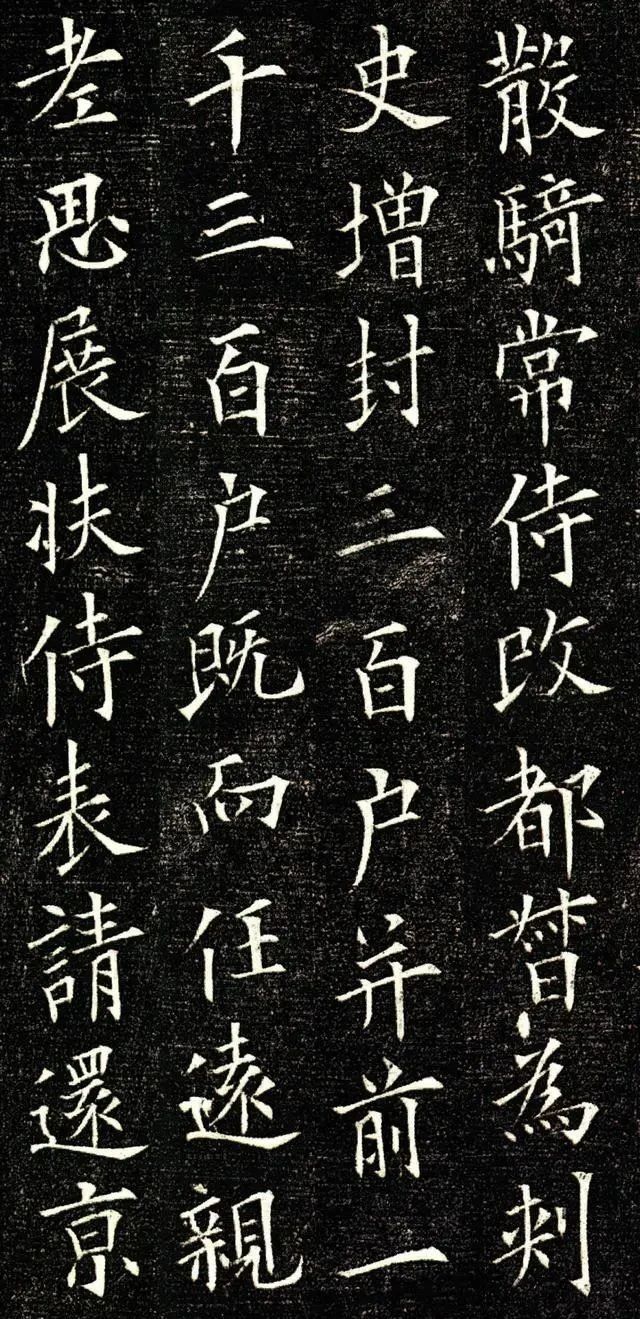 散騎常侍改都督為刺
史增封三百户并前一
千三百户既而任遠親
老思展扶侍表請還京